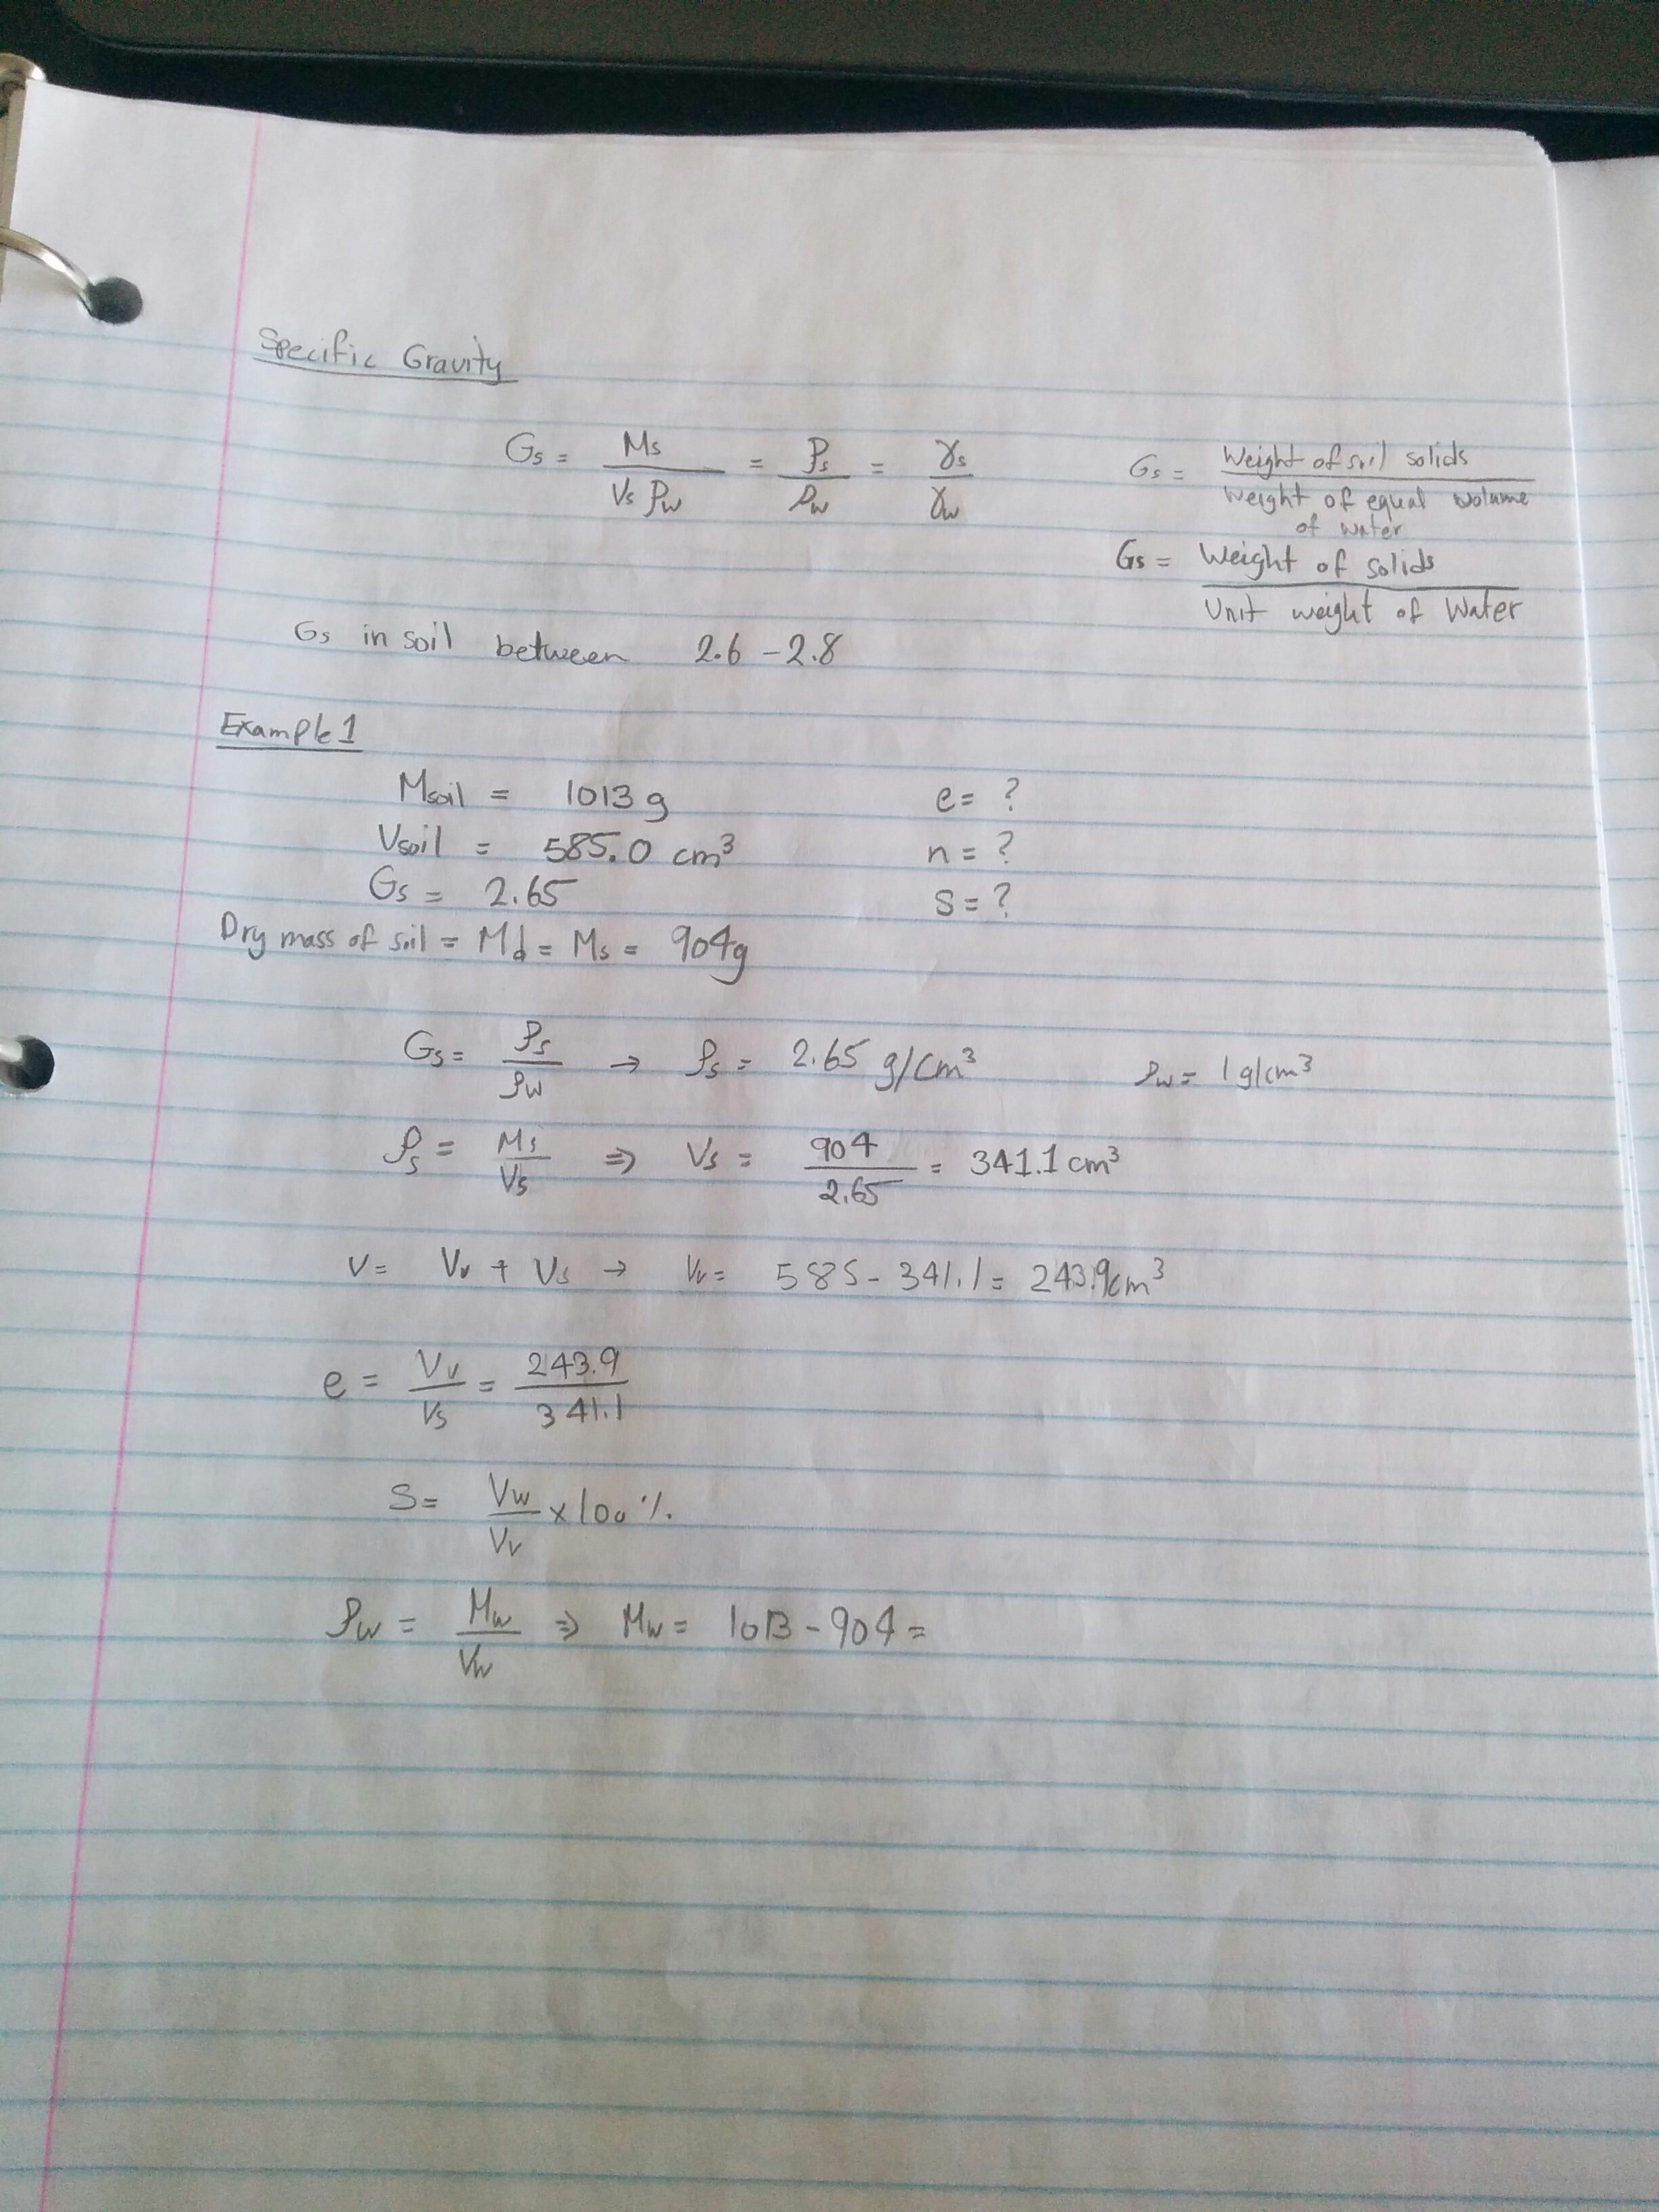 Specific Gravity
Gs = Ms / Vs ρw = ρs / ρw = γs / γw
Gs = Weight of soil solids / Weight of equal volume of water
Gs = Weight of solids / Unit weight of Water
Gs in soil between 2.6 - 2.8
Example 1
Msoil = 1013 g e = ?
Vsoil = 585.0 cm³ n = ?
Gs = 2.65 S = ?
Dry mass of soil = Md = Ms = 904g
Gs = ρs / ρw → ρs = 2.65 g/cm³ ρw = 1 g/cm³
ρs = Ms / Vs ⇒ Vs = 904 / 2.65 = 341.1 cm³
V = Vv + Vs → Vv = 585 - 341.1 = 243.9cm³
e = Vv / Vs = 243.9 / 341.1
S = Vw / Vv x 100 %
ρw = Mw / Vw ⇒ Mw = 1013 - 904 =